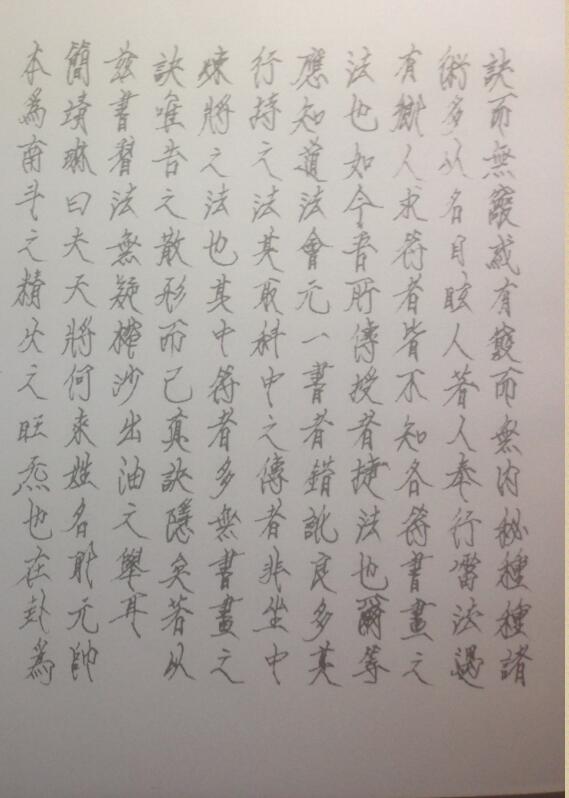 訣而無竅或有竅而無內秘種種諸
術多以名目眩人著人奉行雷法遇
有鄉人求符者皆不知各符書畫之
法也如今吾所傳授者捷法也爾等
應知道法會元一書者錯訛良多其
行持之法其取科中之傳者非坐中
煉將之法也其中符者多無書畫之
訣唯告之散形而已真訣隱矣若以
茲書習法無疑榨沙出油之舉耳
簡靖琳曰夫天將何來姓名耶元帥
本為南斗之精火之旺炁也在卦為